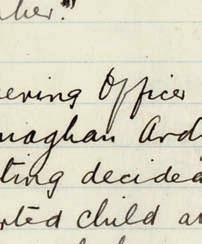 her."
eiving Officer
naghan Ard
ting decided
rted child a